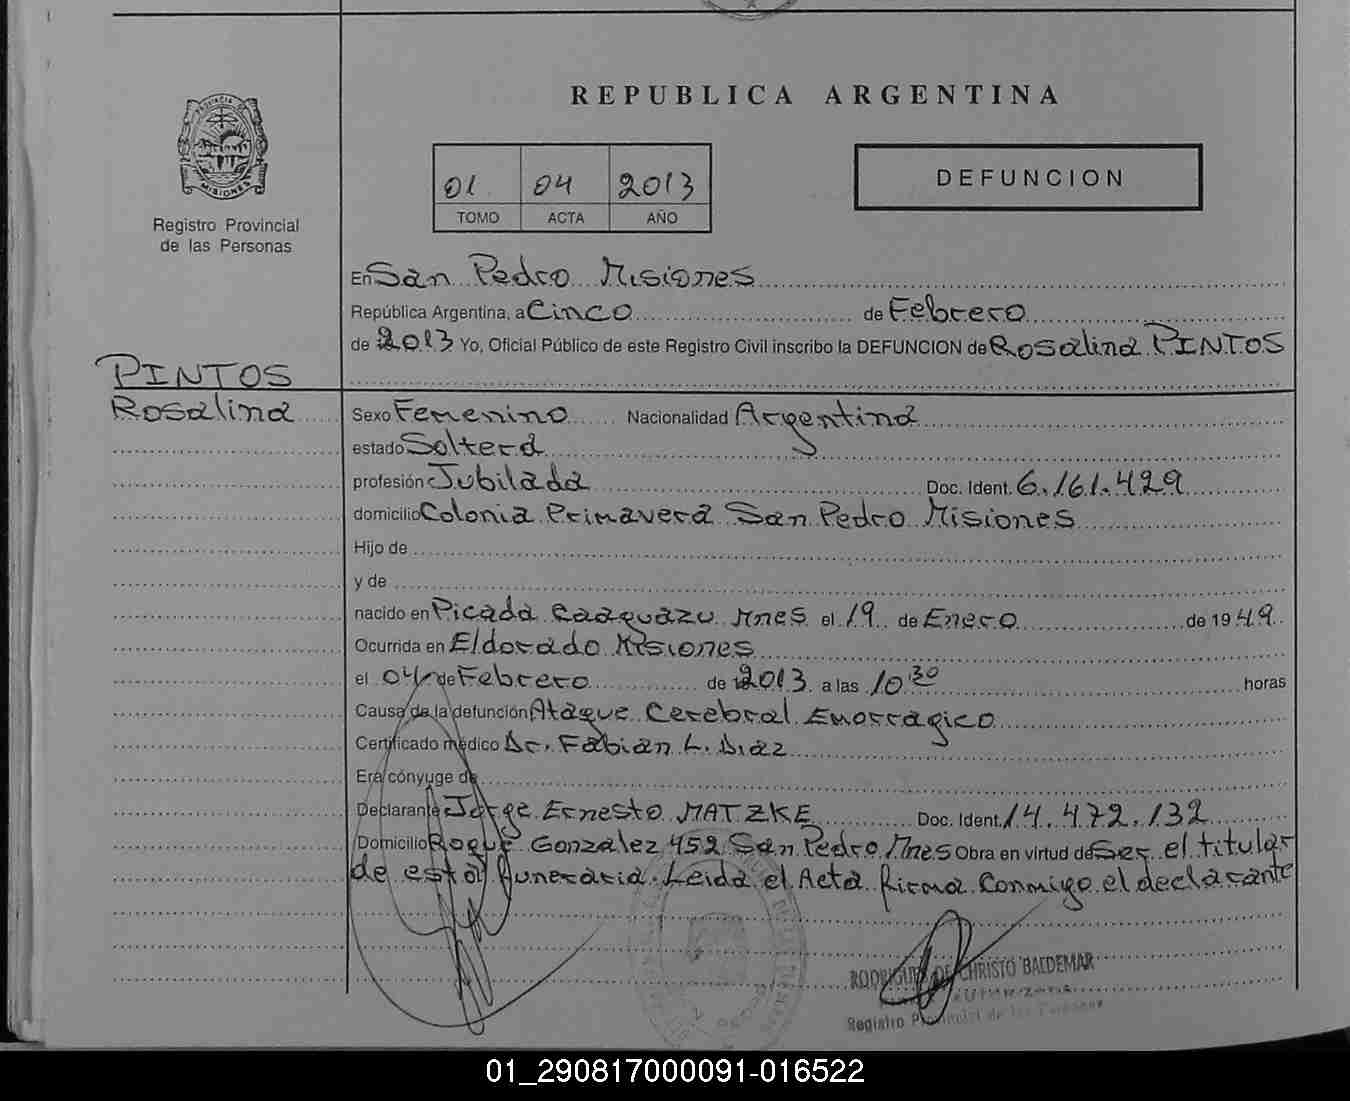 REPUBLICA ARGENTINA
MISIONES
Registro Provincial
de las Personas
01 04 2013
TOMO ACTA AÑO
DEFUNCION
En San Pedro Misiones
República Argentina, a Cinco de Febrero
de 2013 Yo, Oficial Público de este Registro Civil inscribo la DEFUNCION de Rosalina PINTOS
PINTOS
Rosalina
Sexo Femenino Nacionalidad Argentina
estado Soltera
profesión Jubilada Doc. Ident. 6.161.429
domicilio Colonia Primavera San Pedro Misiones
Hijo de
y de
nacido en Picada Caaguazu Mnes el 19 de Enero de 1949
Ocurrida en Eldorado Misiones
el 04 de Febrero de 2013 a las 10 30 horas
Causa de la defunción Ataque Cerebral Emorragico
Certificado médico Dr. Fabian L. Diaz
Era cónyuge de
Declarante Jorge Ernesto MATZKE Doc. Ident. 14.472.132
Domicilio Roque Gonzalez 452 San Pedro Mnes Obra en virtud de Ser el titular
de esta funeraria. Leida el Acta firma Conmigo el declarante
RODRIGUEZ DE CHRISTO BALDEMAR
Registro Provincial de las Personas
01_290817000091-016522